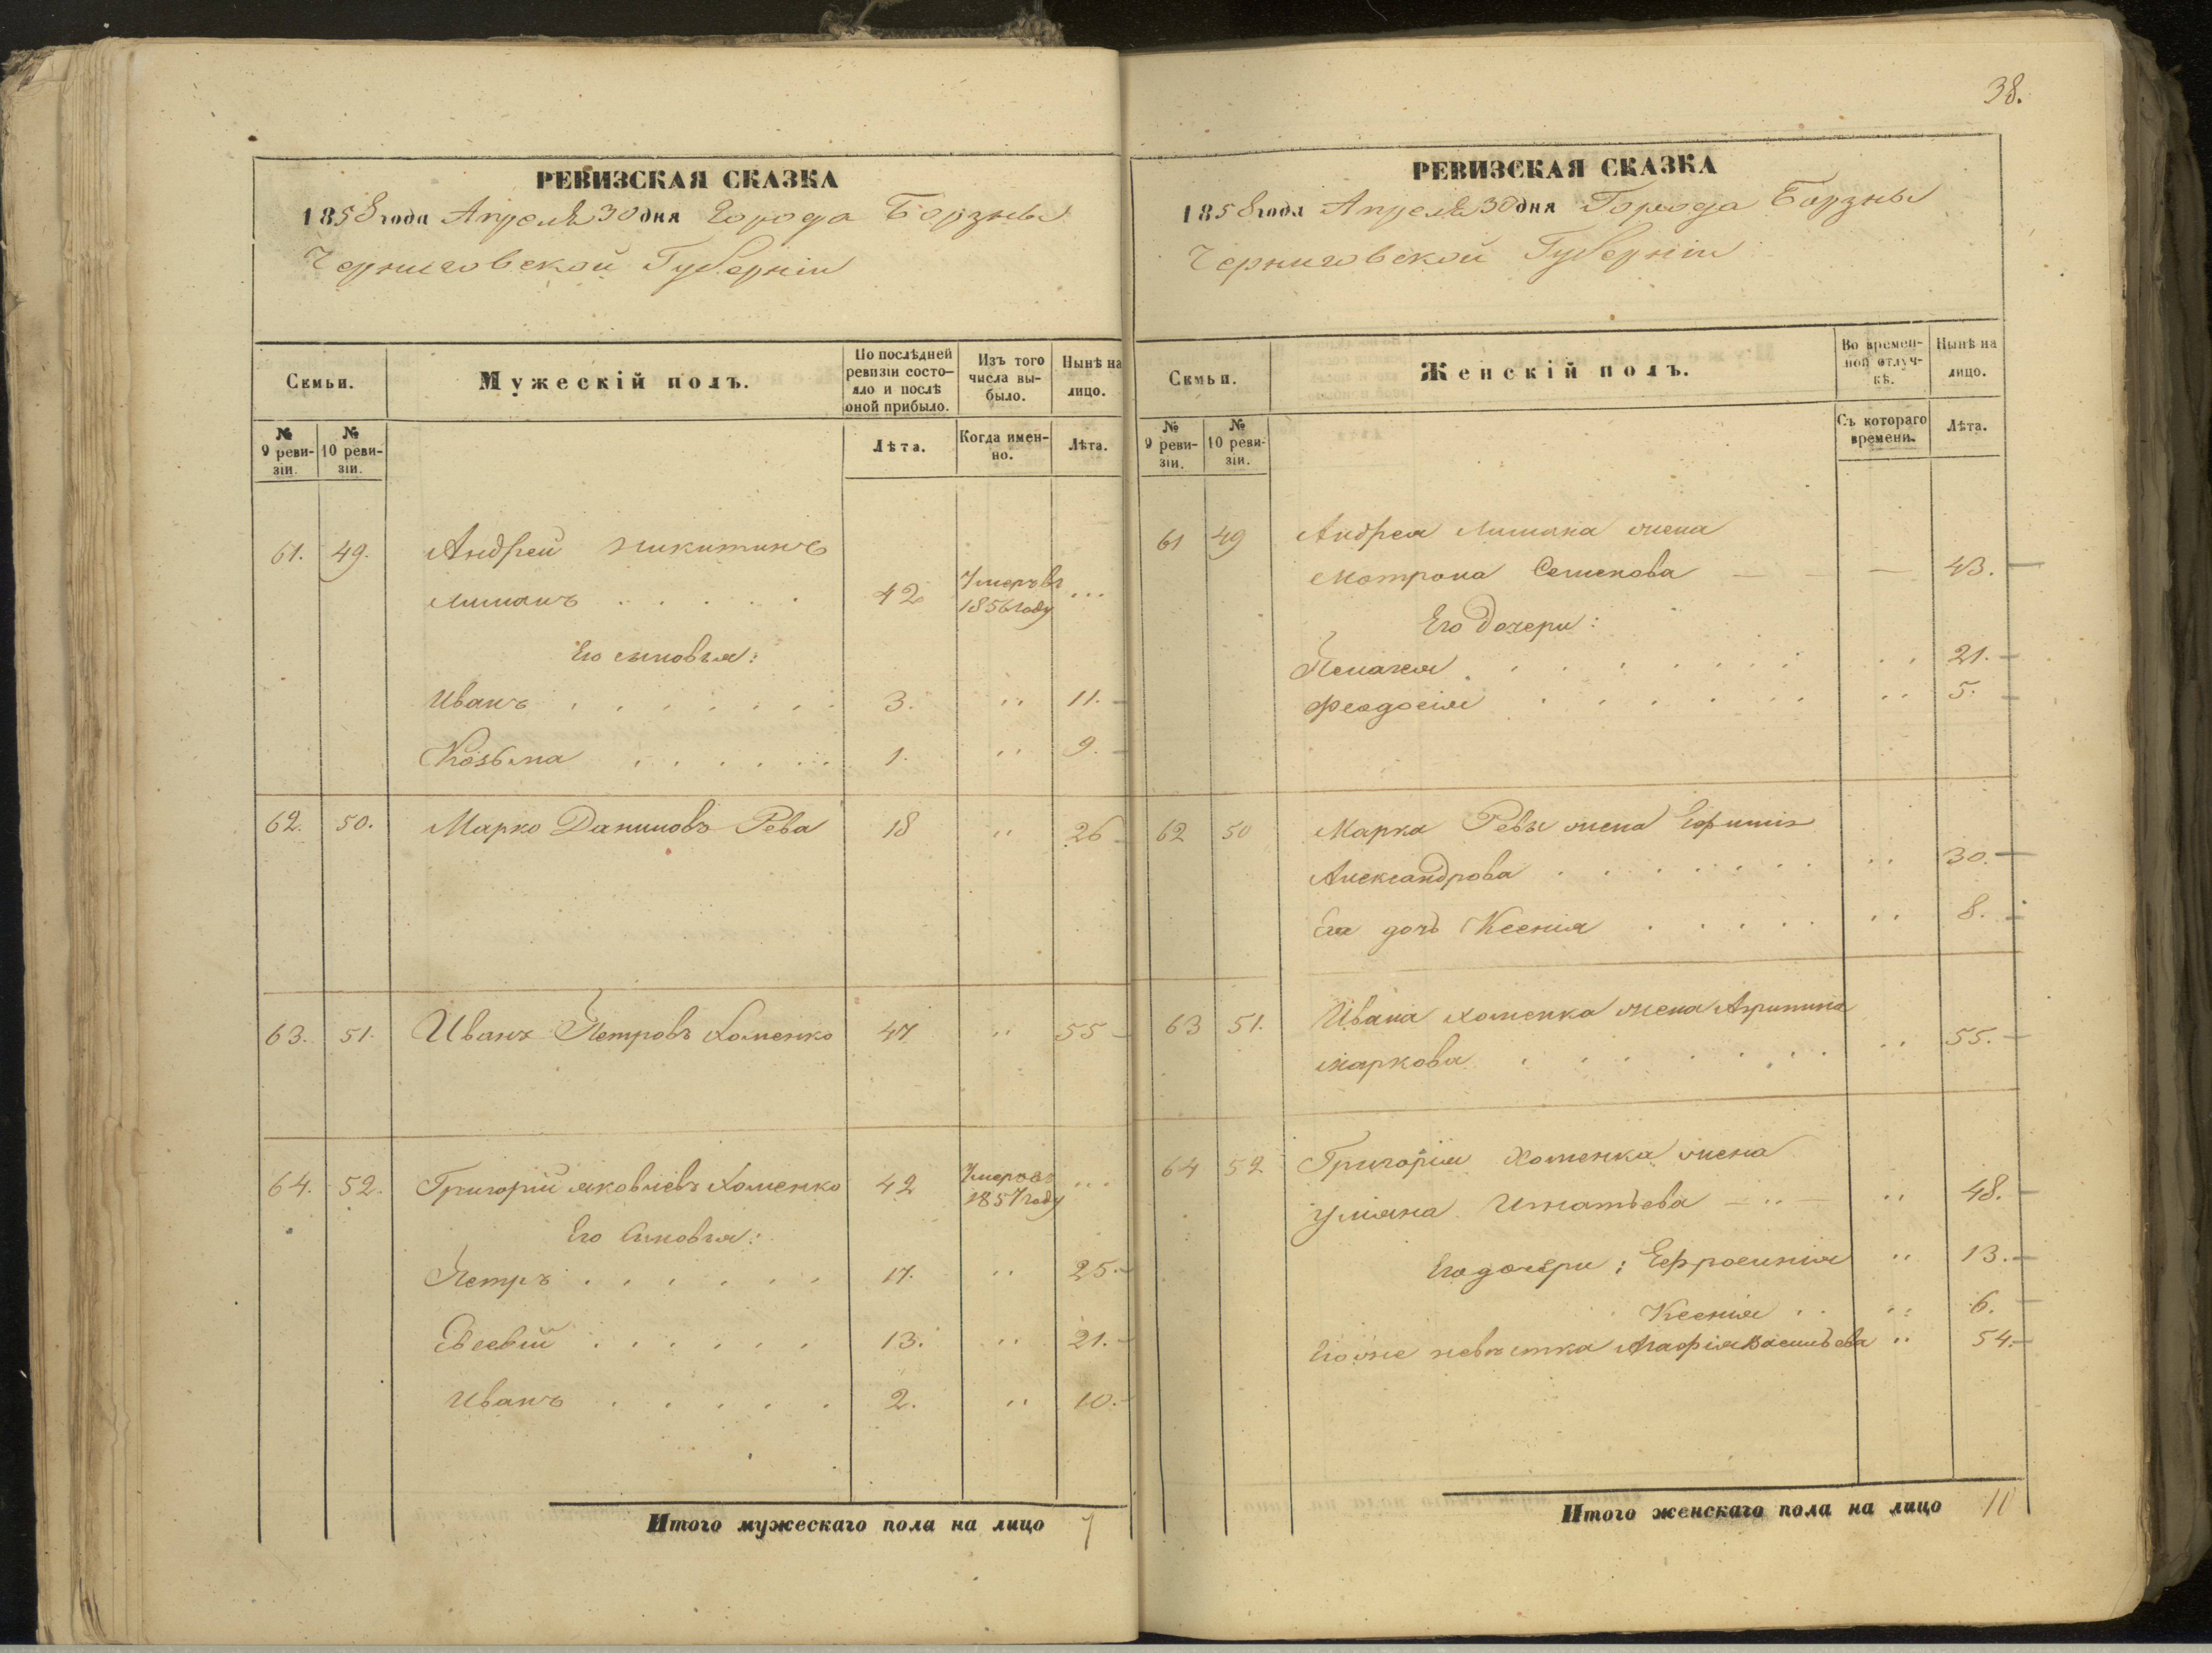 РЕВИЗСКАЯ СКАЗКА
1858 года Апреля 30 дня Города Борзны
Черниговской Губерніи
Семьи.
Мужескій полъ.
По послѣдней ревизіи состояло и послѣ оной прибыло.
Изъ того числа выбыло.
Нынѣ на лицо.
№ 9 ревизіи.
№ 10 ревизіи.
Лѣта.
Когда именно.
Лѣта.
61. 49. Андрей Никитинъ
Лиманъ . . . . . 42 Умеръ въ 1856 году ...
Его сыновья:
Иванъ . . . . . . . 3. " 11.
Козьма . . . . . . 1. " 9.
62. 50. Марко Даниловъ Рева 18 " 26
63. 51. Иванъ Петровъ Хоменко 47 " 55
64. 52. Григорій Яковлевъ Хоменко 42 Умеръ въ 1857 году ...
Его сыновья:
Петръ . . . . . . 17. " 25.
Евсевій . . . . . . 13. " 21.
Иванъ . . . . . 2. " 10.
Итого мужескаго пола на лицо 7
38.
РЕВИЗСКАЯ СКАЗКА
1858 года Апреля 30 дня Города Борзны
Черниговской Губерніи
Семьи.
Женскій полъ.
Во временной отлучкѣ.
Нынѣ на лицо.
№ 9 ревизіи.
№ 10 ревизіи.
Съ котораго времени.
Лѣта.
61 49 Андрея Лимана жена
Матрона Семенова — — — 43.
Его дочери:
Пелагея . . . . . . . " 21.
Феодосія . . . . . . " 5.
62 50 Марка Ревы жена Ефимія
Александрова . . . . . . " 30.
Его дочь Ксенія . . . . . " 8.
63 51. Ивана Хоменка жена Агрипина
Маркова . . . . . . . " 55.
64 52 Григорія Хоменка жена
Уліяна Игнатьева — " — " 48.
Его дочери: Ефросинія " 13.
Ксенія . . " 6.
Его же невѣстка Агафія Васильева " 54.
Итого женскаго пола на лицо 11